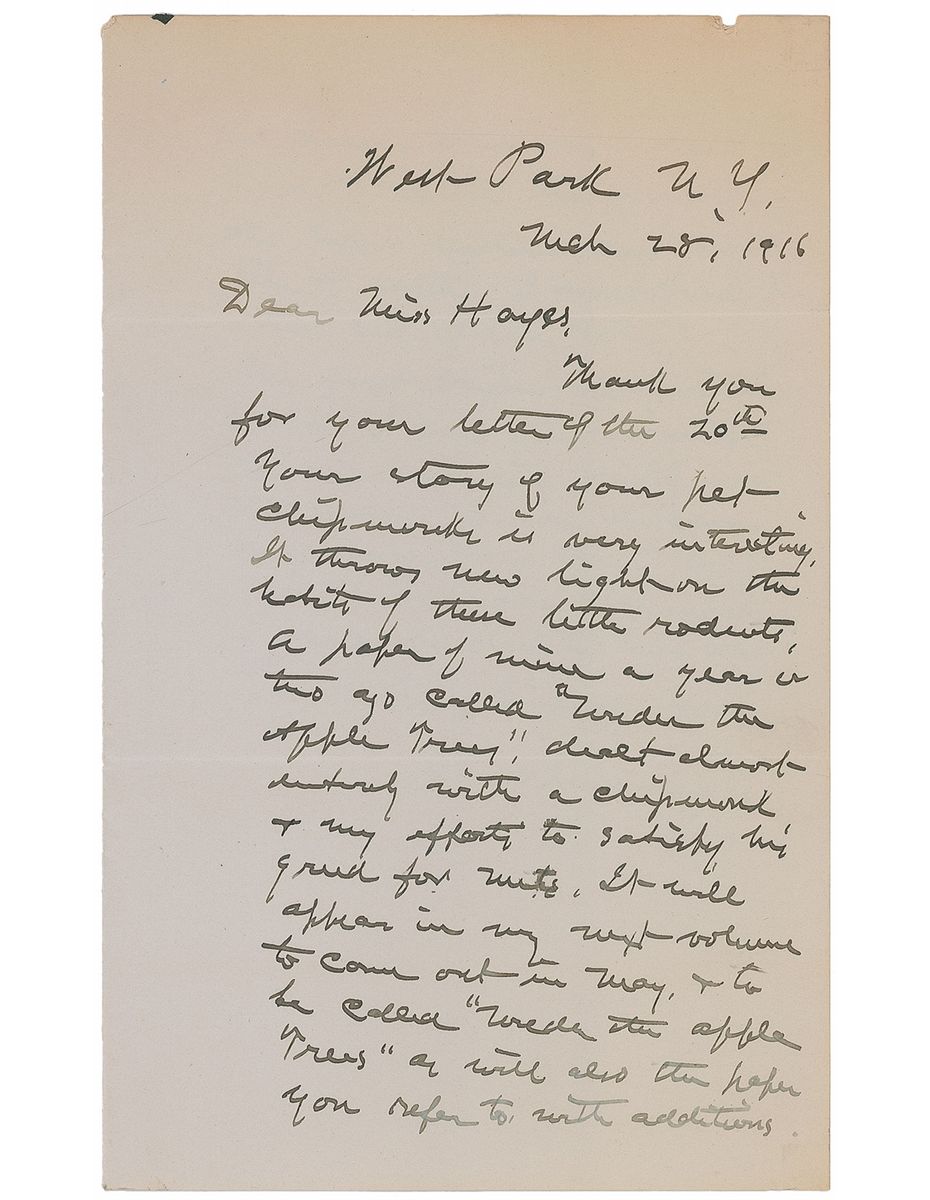 West Park N Y,
Mch 28, 1916
Dear Miss Hayes,
Thank you
for your letter of the 20th
Your story of your pet
chipmunks is very interesting.
It throws new light on the
habits of these little rodents.
A paper of mine a year or
two ago called "Under the
Apple Trees", dealt almost
entirely with a chipmunk
& my efforts to satisfy his
greed for nuts. It will
appear in my next volume
to come out in May, & to
be called "Under the apple
Trees" as will also the paper
you refer to, with additions.